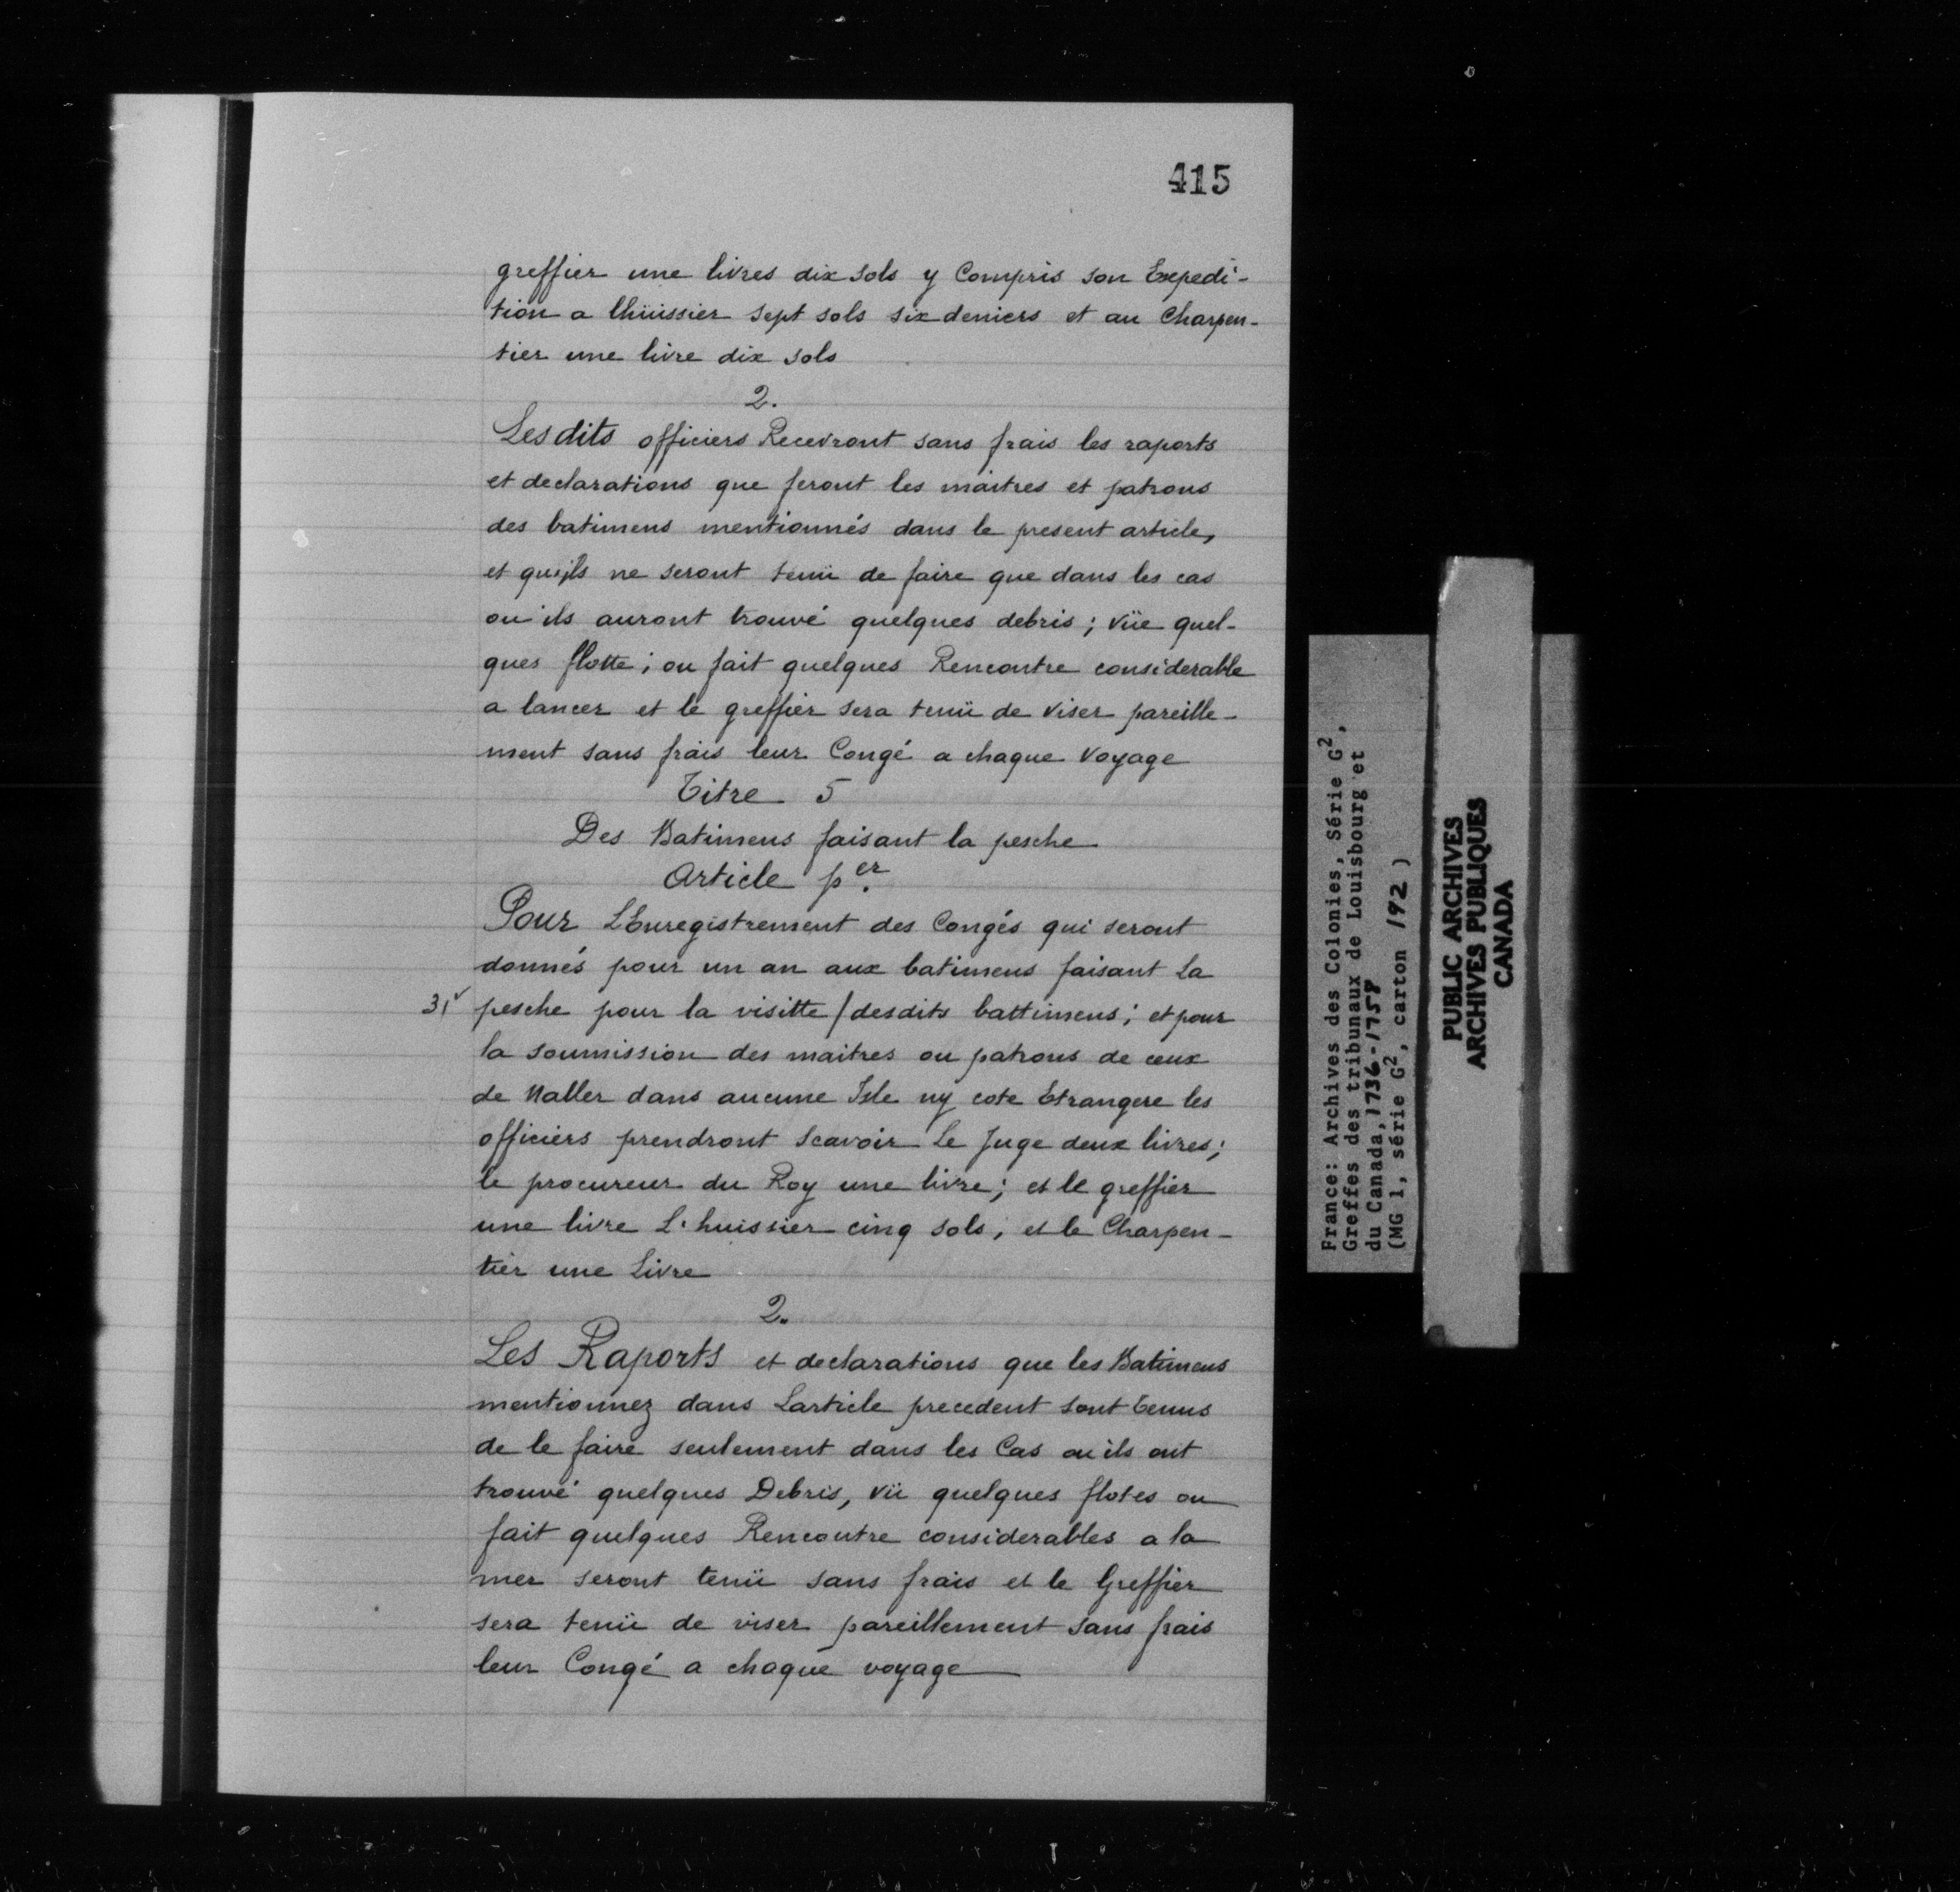 415
greffier une livres dix sols y Compris son Expedi-
tion a lhüissier sept sols six deniers et au Charpen-
tier une livre dix sols
2.
Lesdits officiers Recevront sans frais les raports
et declarations que feront les maitres et patrons
des batimens mentionnés dans le present article,
et quils ne seront tenü de faire que dans les cas
ou ils auront trouvé quelques debris; vüe quel-
ques flotte; ou fait quelques Rencontre considerable
a lancer et le greffier sera tenü de viser pareille-
ment sans frais leur Congé a chaque Voyage
Titre 5
Des Batimens faisant la pesche
Article per.
Pour L'Enregistrement des Congés qui seront
donnés pour un an aux batimens faisant la
31v pesche pour la visitte / desdits battimens; et pour
la soumission des maitres ou patrons de ceux
de Naller dans aucune Isle ny cote Etrangere les
officiers prendront scavoir Le Juge deux livres;
le procureur du Roy une livre; et le greffier
une livre L'huissier cinq sols, et le Charpen-
tier une Livre
2.
Les Raports et declarations que les Batimens
mentionnez dans Larticle precedent sont tenus
de le faire seulement dans les Cas ou ils ont
trouvé quelques Debris, vü quelques flotes ou
fait quelques Rencontre considerables a la
mer seront tenü sans frais et le Greffier
sera tenü de viser pareillement sans frais
leur Congé a chaque voyage
France: Archives des Colonies, Série G2,
Greffes des tribunaux de Louisbourg et
du Canada, 1736-1758
(MG 1, série G2, carton 192)
PUBLIC ARCHIVES
ARCHIVES PUBLIQUES
CANADA